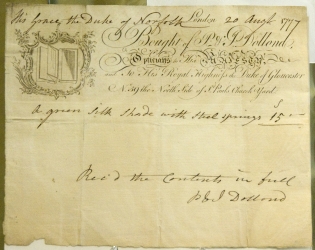 His Grace the Duke of Norfolk London 20 Augt 1777
Bought of P & J Dollond
Opticians to His MAJESTY
and to His Royal Highness the Duke of Gloucester
No 59 the North Side of St Pauls Church Yard
a green silk shade with steel springs 15
Rec'd the Contents in full
P & J Dollond